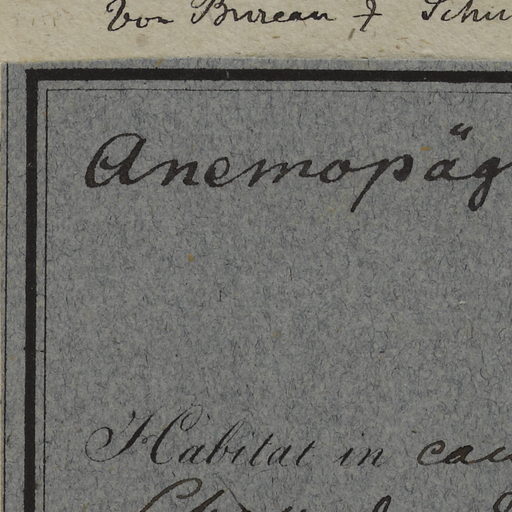 Von Bureau f Schu
Anemopäg
Habitat in cam